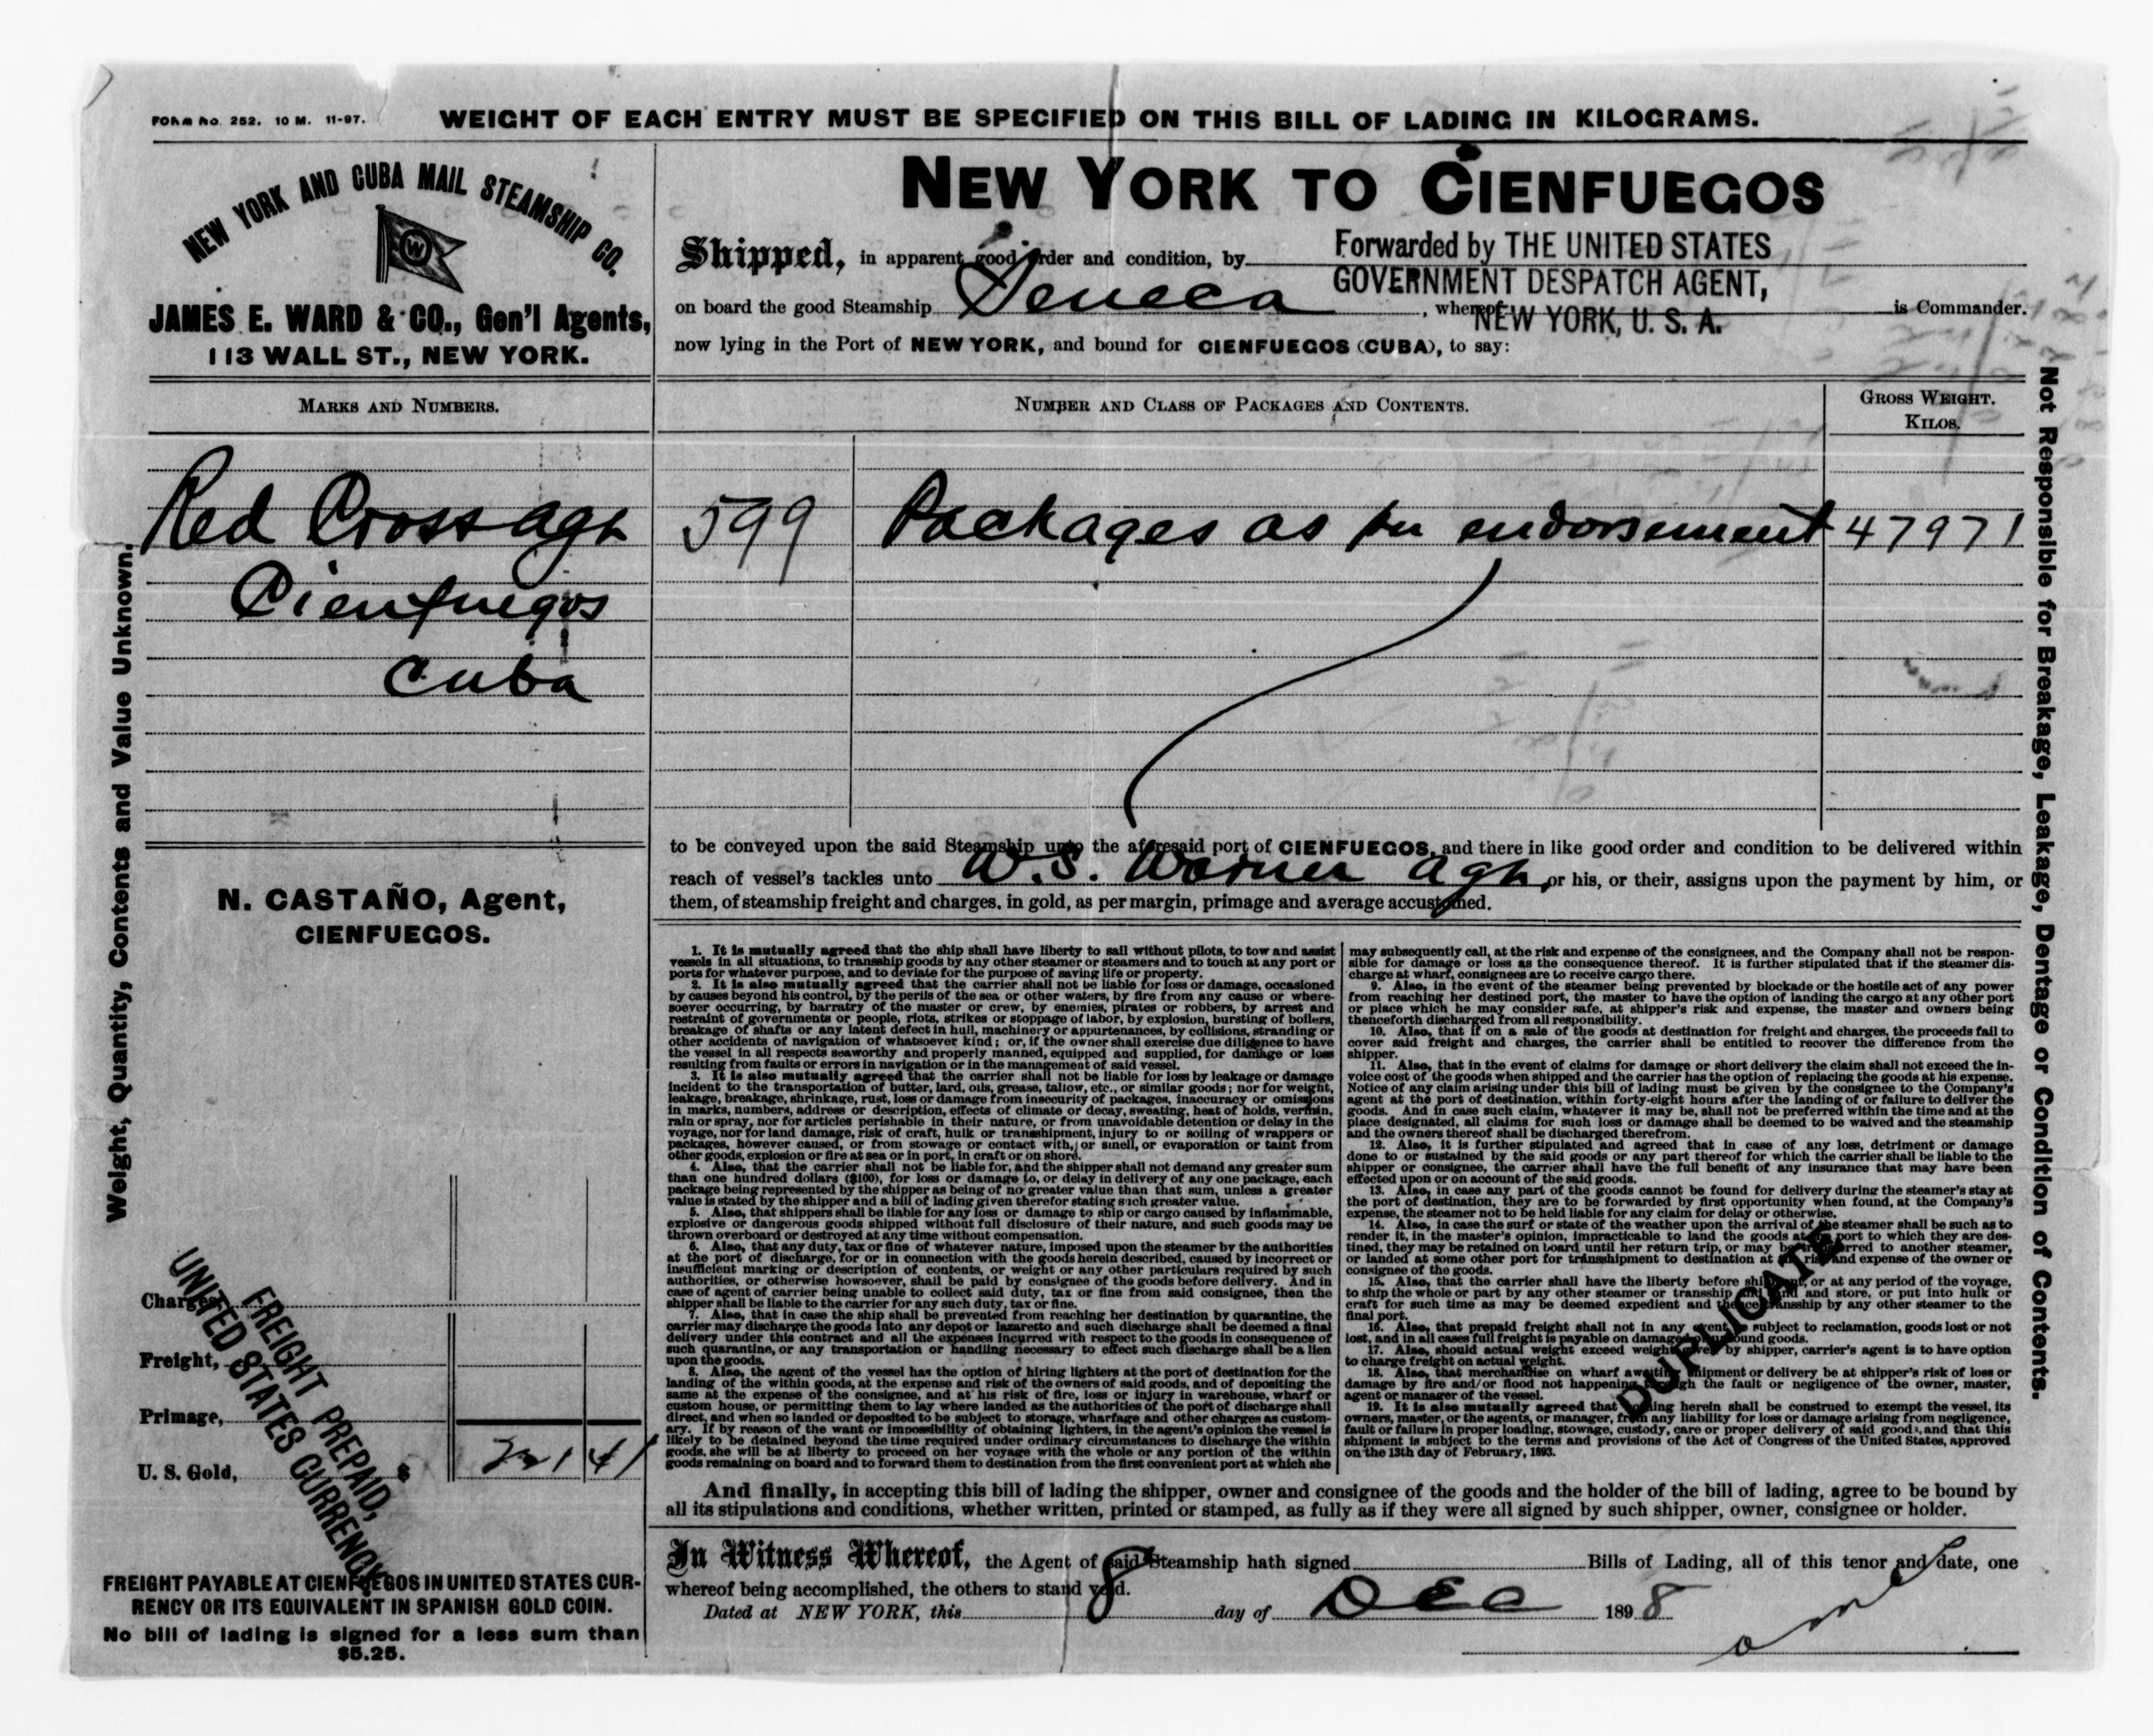 FORM NO. 252. 10 M. 11-97.
WEIGHT OF EACH ENTRY MUST BE SPECIFIED ON THIS BILL OF LADING IN KILOGRAMS.
NEW YORK AND CUBA MAIL STEAMSHIP CO.
W
JAMES E. WARD & CO., Gen'l Agents,
113 WALL ST., NEW YORK.
NEW YORK TO CIENFUEGOS
Shipped, in apparent good order and condition, by
Forwarded by THE UNITED STATES
GOVERNMENT DESPATCH AGENT,
NEW YORK, U. S. A.
on board the good Steamship Seneca, whereof is Commander.
now lying in the Port of NEW YORK, and bound for CIENFUEGOS (CUBA), to say:
MARKS AND NUMBERS.
NUMBER AND CLASS OF PACKAGES AND CONTENTS.
GROSS WEIGHT.
KILOS.
Red Cross agt
Cienfuegos
Cuba
599 Packages as per endorsement 47971
Weight, Quantity, Contents and Value Unknown.
Not Responsible for Breakage, Leakage, Dentage or Condition of Contents.
to be conveyed upon the said Steamship unto the aforesaid port of CIENFUEGOS, and there in like good order and condition to be delivered within
reach of vessel's tackles unto W. S. Warner Agt, or his, or their, assigns upon the payment by him, or
them, of steamship freight and charges, in gold, as per margin, primage and average accustomed.
N. CASTAÑO, Agent,
CIENFUEGOS.
Charges
Freight,
Primage,
U. S. Gold, $ 221 41
FREIGHT PREPAID,
UNITED STATES CURRENCY
FREIGHT PAYABLE AT CIENFUEGOS IN UNITED STATES CUR-
RENCY OR ITS EQUIVALENT IN SPANISH GOLD COIN.
No bill of lading is signed for a less sum than
$5.25.
1. It is mutually agreed that the ship shall have liberty to sail without pilots, to tow and assist
vessels in all situations, to transship goods by any other steamer or steamers and to touch at any port or
ports for whatever purpose, and to deviate for the purpose of saving life or property.
2. It is also mutually agreed that the carrier shall not be liable for loss or damage, occasioned
by causes beyond his control, by the perils of the sea or other waters, by fire from any cause or where-
soever occurring, by barratry of the master or crew, by enemies, pirates or robbers, by arrest and
restraint of governments or people, riots, strikes or stoppage of labor, by explosion, bursting of boilers,
breakage of shafts or any latent defect in hull, machinery or appurtenances, by collisions, stranding or
other accidents of navigation of whatsoever kind; or, if the owner shall exercise due diligence to have
the vessel in all respects seaworthy and properly manned, equipped and supplied, for damage or loss
resulting from faults or errors in navigation or in the management of said vessel.
3. It is also mutually agreed that the carrier shall not be liable for loss by leakage or damage
incident to the transportation of butter, lard, oils, grease, tallow, etc., or similar goods; nor for weight,
leakage, breakage, shrinkage, rust, loss or damage from insecurity of packages, inaccuracy or omissions
in marks, numbers, address or description, effects of climate or decay, sweating, heat of holds, vermin,
rain or spray, nor for articles perishable in their nature, or from unavoidable detention or delay in the
voyage, nor for land damage, risk of craft, hulk or transshipment, injury to or soiling of wrappers or
packages, however caused, or from stowage or contact with, or smell, or evaporation or taint from
other goods, explosion or fire at sea or in port, in craft or on shore.
4. Also, that the carrier shall not be liable for, and the shipper shall not demand any greater sum
than one hundred dollars ($100), for loss or damage to, or delay in delivery of any one package, each
package being represented by the shipper as being of no greater value than that sum, unless a greater
value is stated by the shipper and a bill of lading given therefor stating such greater value.
5. Also, that shippers shall be liable for any loss or damage to ship or cargo caused by inflammable,
explosive or dangerous goods shipped without full disclosure of their nature, and such goods may be
thrown overboard or destroyed at any time without compensation.
6. Also, that any duty, tax or fine of whatever nature, imposed upon the steamer by the authorities
at the port of discharge, for or in connection with the goods herein described, caused by incorrect or
insufficient marking or description of contents, or weight or any other particulars required by such
authorities, or otherwise howsoever, shall be paid by consignee of the goods before delivery. And in
case of agent of carrier being unable to collect said duty, tax or fine from said consignee, then the
shipper shall be liable to the carrier for any such duty, tax or fine.
7. Also, that in case the ship shall be prevented from reaching her destination by quarantine, the
carrier may discharge the goods into any depot or lazaretto and such discharge shall be deemed a final
delivery under this contract and all the expenses incurred with respect to the goods in consequence of
such quarantine, or any transportation or handling necessary to effect such discharge shall be a lien
upon the goods.
8. Also, the agent of the vessel has the option of hiring lighters at the port of destination for the
landing of the within goods, at the expense and risk of the owners of said goods, and of depositing the
same at the expense of the consignee, and at his risk of fire, loss or injury in warehouse, wharf or
custom house, or permitting them to lay where landed as the authorities of the port of discharge shall
direct, and when so landed or deposited to be subject to storage, wharfage and other charges as custom-
ary. If by reason of the want or impossibility of obtaining lighters, in the agent's opinion the vessel is
likely to be detained beyond the time required under ordinary circumstances to discharge the within
goods, she will be at liberty to proceed on her voyage with the whole or any portion of the within
goods remaining on board and to forward them to destination from the first convenient port at which she
may subsequently call, at the risk and expense of the consignees, and the Company shall not be respon-
sible for damage or loss as the consequence thereof. It is further stipulated that if the steamer dis-
charge at wharf, consignees are to receive cargo there.
9. Also, in the event of the steamer being prevented by blockade or the hostile act of any power
from reaching her destined port, the master to have the option of landing the cargo at any other port
or place which he may consider safe, at shipper's risk and expense, the master and owners being
thenceforth discharged from all responsibility.
10. Also, that if on a sale of the goods at destination for freight and charges, the proceeds fail to
cover said freight and charges, the carrier shall be entitled to recover the difference from the
shipper.
11. Also, that in the event of claims for damage or short delivery the claim shall not exceed the in-
voice cost of the goods when shipped and the carrier has the option of replacing the goods at his expense.
Notice of any claim arising under this bill of lading must be given by the consignee to the Company's
agent at the port of destination, within forty-eight hours after the landing of or failure to deliver the
goods. And in case such claim, whatever it may be, shall not be preferred within the time and at the
place designated, all claims for such loss or damage shall be deemed to be waived and the steamship
and the owners thereof shall be discharged therefrom.
12. Also, it is further stipulated and agreed that in case of any loss, detriment or damage
done to or sustained by the said goods or any part thereof for which the carrier shall be liable to the
shipper or consignee, the carrier shall have the full benefit of any insurance that may have been
effected upon or on account of the said goods.
13. Also, in case any part of the goods cannot be found for delivery during the steamer's stay at
the port of destination, they are to be forwarded by first opportunity when found, at the Company's
expense, the steamer not to be held liable for any claim for delay or otherwise.
14. Also, in case the surf or state of the weather upon the arrival of the steamer shall be such as to
render it, in the master's opinion, impracticable to land the goods at port to which they are des-
tined, they may be retained on board until her return trip, or may be transferred to another steamer,
or landed at some other port for transshipment to destination at risk and expense of the owner or
consignee of the goods.
15. Also, that the carrier shall have the liberty before shipment, or at any period of the voyage,
to ship the whole or part by any other steamer or transship and land and store, or put into hulk or
craft for such time as may be deemed expedient and thence transship by any other steamer to the
final port.
16. Also, that prepaid freight shall not in any event be subject to reclamation, goods lost or not
lost, and in all cases full freight is payable on damaged or unsound goods.
17. Also, should actual weight exceed weight given by shipper, carrier's agent is to have option
to charge freight on actual weight.
18. Also, that merchandise on wharf awaiting shipment or delivery be at shipper's risk of loss or
damage by fire and/or flood not happening through the fault or negligence of the owner, master,
agent or manager of the vessel.
19. It is also mutually agreed that nothing herein shall be construed to exempt the vessel, its
owners, master, or the agents, or manager, from any liability for loss or damage arising from negligence,
fault or failure in proper loading, stowage, custody, care or proper delivery of said goods, and that this
shipment is subject to the terms and provisions of the Act of Congress of the United States, approved
on the 13th day of February, 1893.
DUPLICATE
And finally, in accepting this bill of lading the shipper, owner and consignee of the goods and the holder of the bill of lading, agree to be bound by
all its stipulations and conditions, whether written, printed or stamped, as fully as if they were all signed by such shipper, owner, consignee or holder.
In Witness Whereof, the Agent of said Steamship hath signed Bills of Lading, all of this tenor and date, one
whereof being accomplished, the others to stand void.
Dated at NEW YORK, this 8 day of Dec 1898